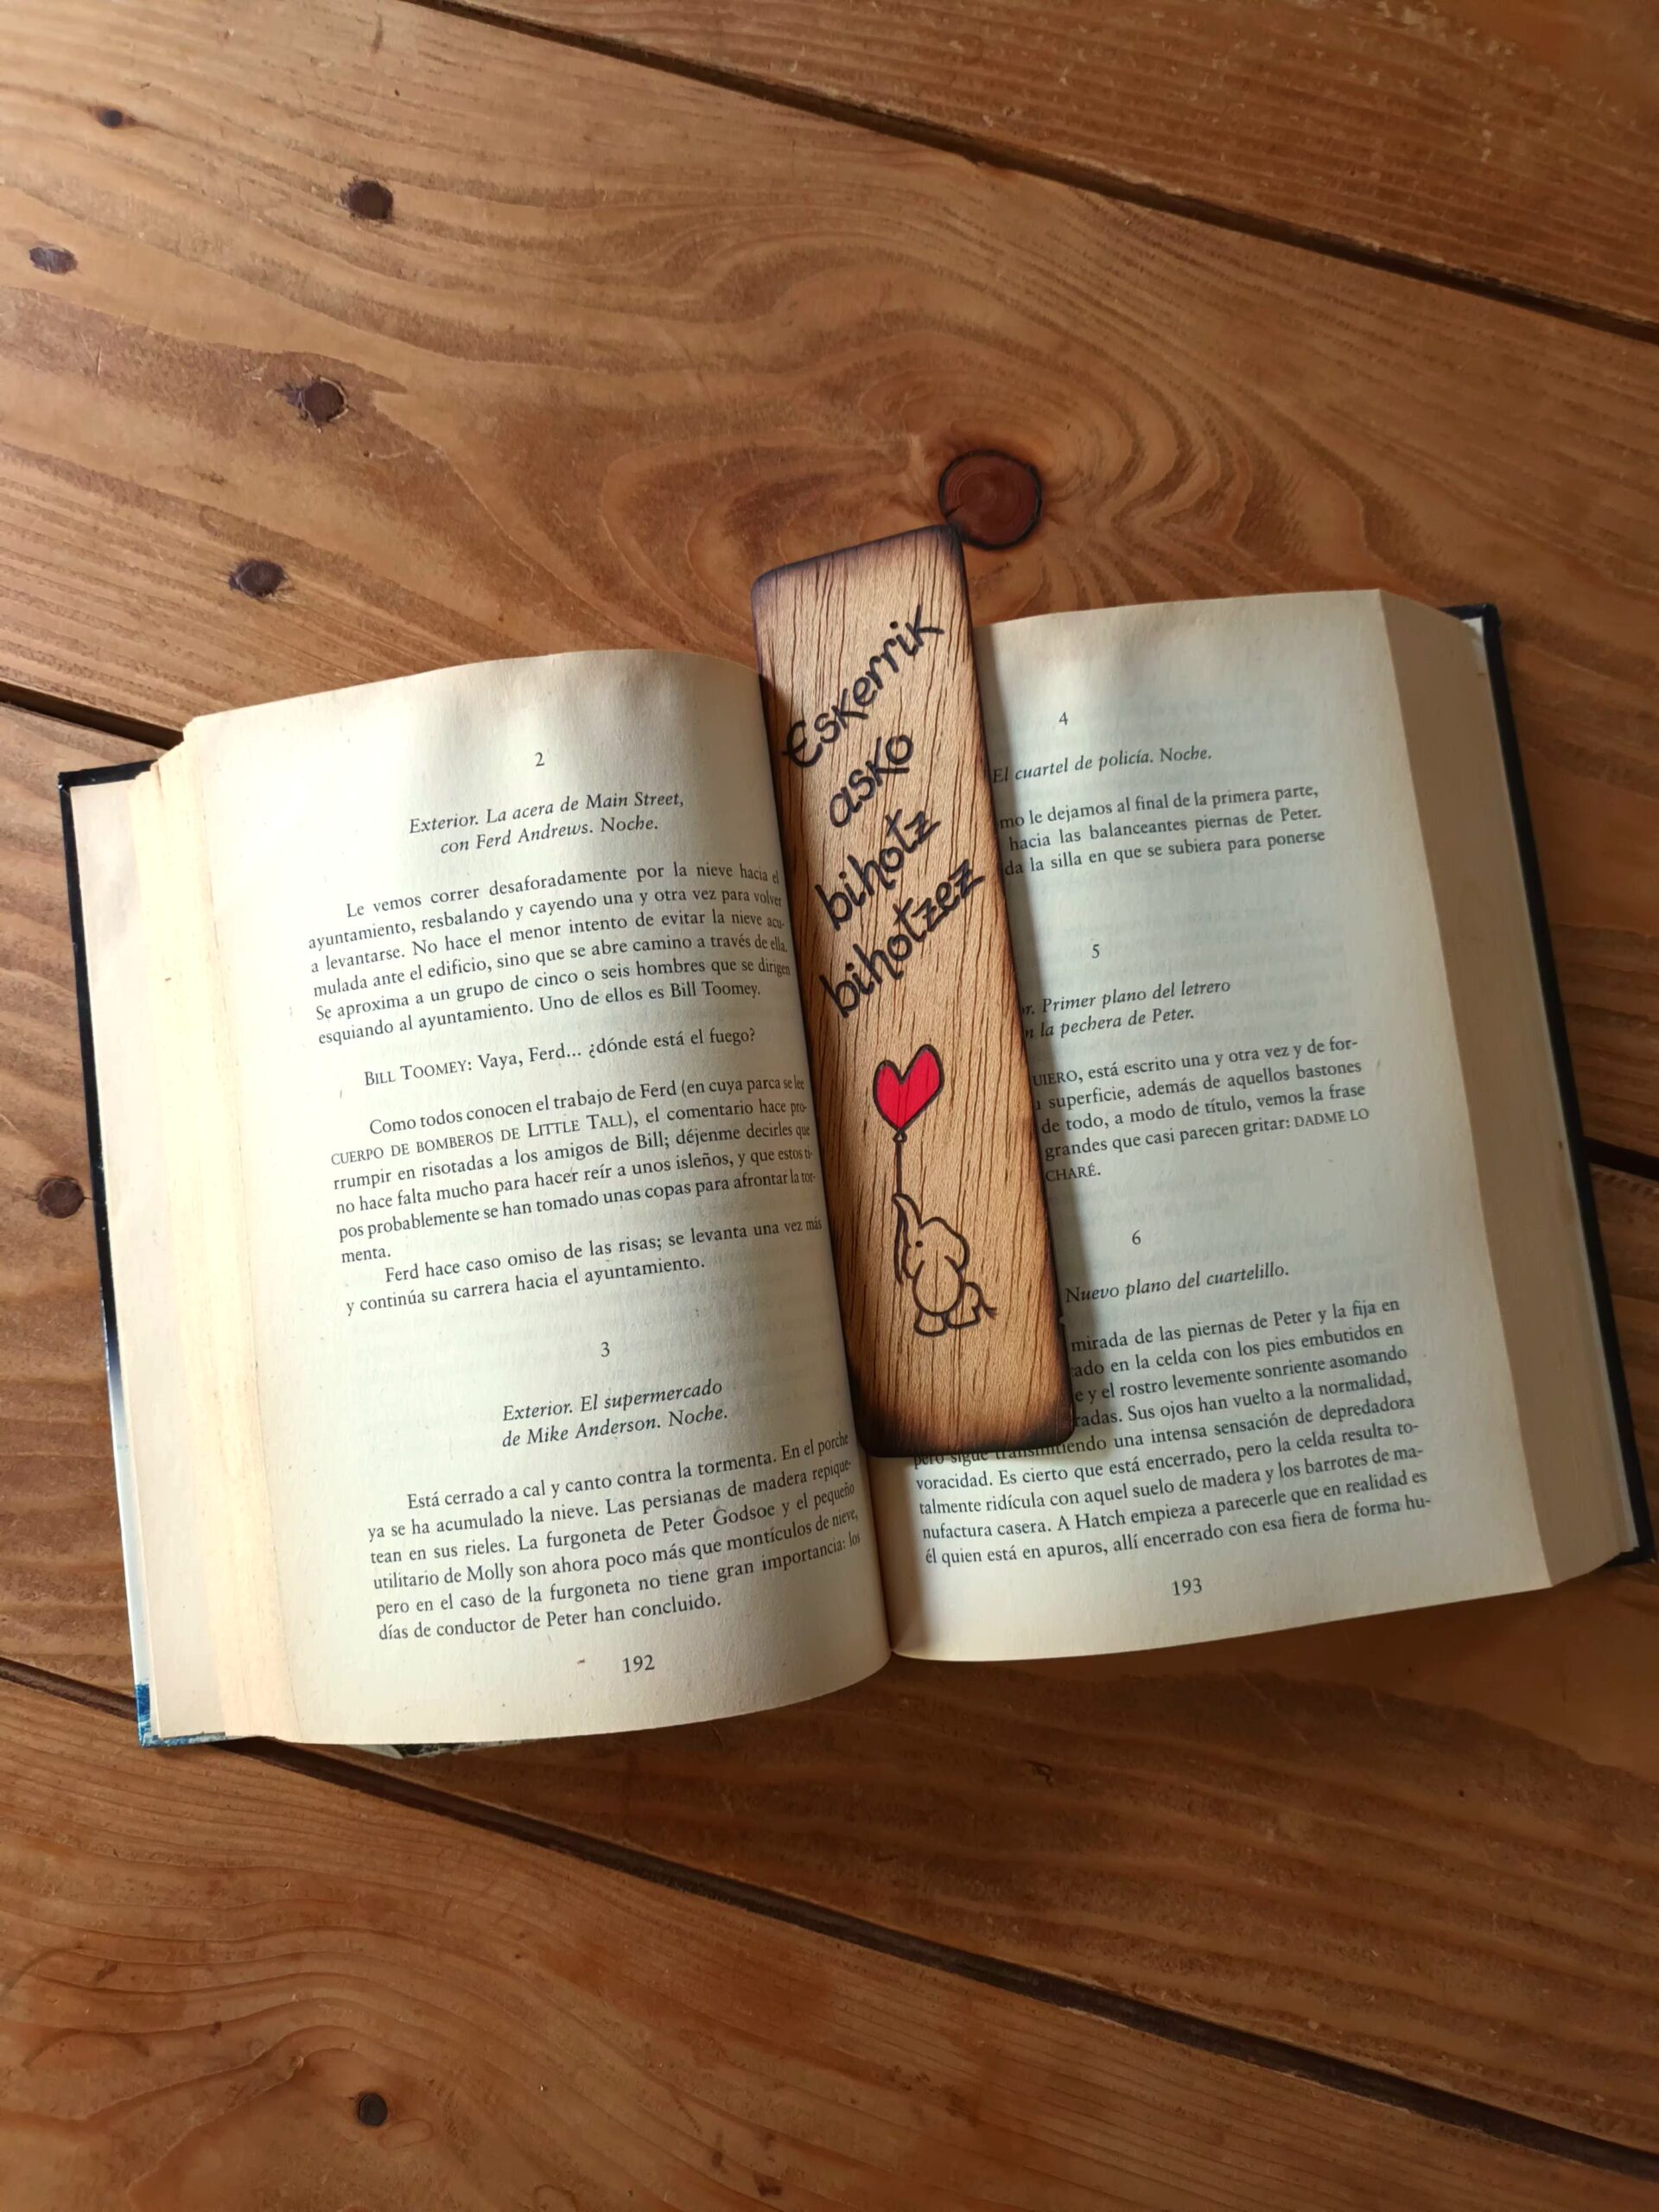 2
Exterior. La acera de Main Street,
con Ferd Andrews. Noche.
Le vemos correr desaforadamente por la nieve hacia el
ayuntamiento, resbalando y cayendo una y otra vez para volver
a levantarse. No hace el menor intento de evitar la nieve acu-
mulada ante el edificio, sino que se abre camino a través de ella.
Se aproxima a un grupo de cinco o seis hombres que se dirigen
esquiando al ayuntamiento. Uno de ellos es Bill Toomey.
BILL TOOMEY: Vaya, Ferd... ¿dónde está el fuego?
Como todos conocen el trabajo de Ferd (en cuya parca se lee
CUERPO DE BOMBEROS DE LITTLE TALL), el comentario hace pro-
rrumpir en risotadas a los amigos de Bill; déjenme decirles que
no hace falta mucho para hacer reír a unos isleños, y que estos ti-
pos probablemente se han tomado unas copas para afrontar la tor-
menta.
Ferd hace caso omiso de las risas; se levanta una vez más
y continúa su carrera hacia el ayuntamiento.
3
Exterior. El supermercado
de Mike Anderson. Noche.
Está cerrado a cal y canto contra la tormenta. En el porche
ya se ha acumulado la nieve. Las persianas de madera repique-
tean en sus rieles. La furgoneta de Peter Godsoe y el pequeño
utilitario de Molly son ahora poco más que montículos de nieve,
pero en el caso de la furgoneta no tiene gran importancia: los
días de conductor de Peter han concluido.
192
Eskerrik
asko
bihotz
bihotzez
4
El cuartel de policía. Noche.
mo le dejamos al final de la primera parte,
hacia las balanceantes piernas de Peter.
da la silla en que se subiera para ponerse
5
r. Primer plano del letrero
n la pechera de Peter.
UIERO, está escrito una y otra vez y de for-
superficie, además de aquellos bastones
de todo, a modo de título, vemos la frase
grandes que casi parecen gritar: DADME LO
CHARÉ.
6
Nuevo plano del cuartelillo.
mirada de las piernas de Peter y la fija en
ado en la celda con los pies embutidos en
e y el rostro levemente sonriente asomando
radas. Sus ojos han vuelto a la normalidad,
pero sigue transmitiendo una intensa sensación de depredadora
voracidad. Es cierto que está encerrado, pero la celda resulta to-
talmente ridícula con aquel suelo de madera y los barrotes de ma-
nufactura casera. A Hatch empieza a parecerle que en realidad es
él quien está en apuros, allí encerrado con esa fiera de forma hu-
193